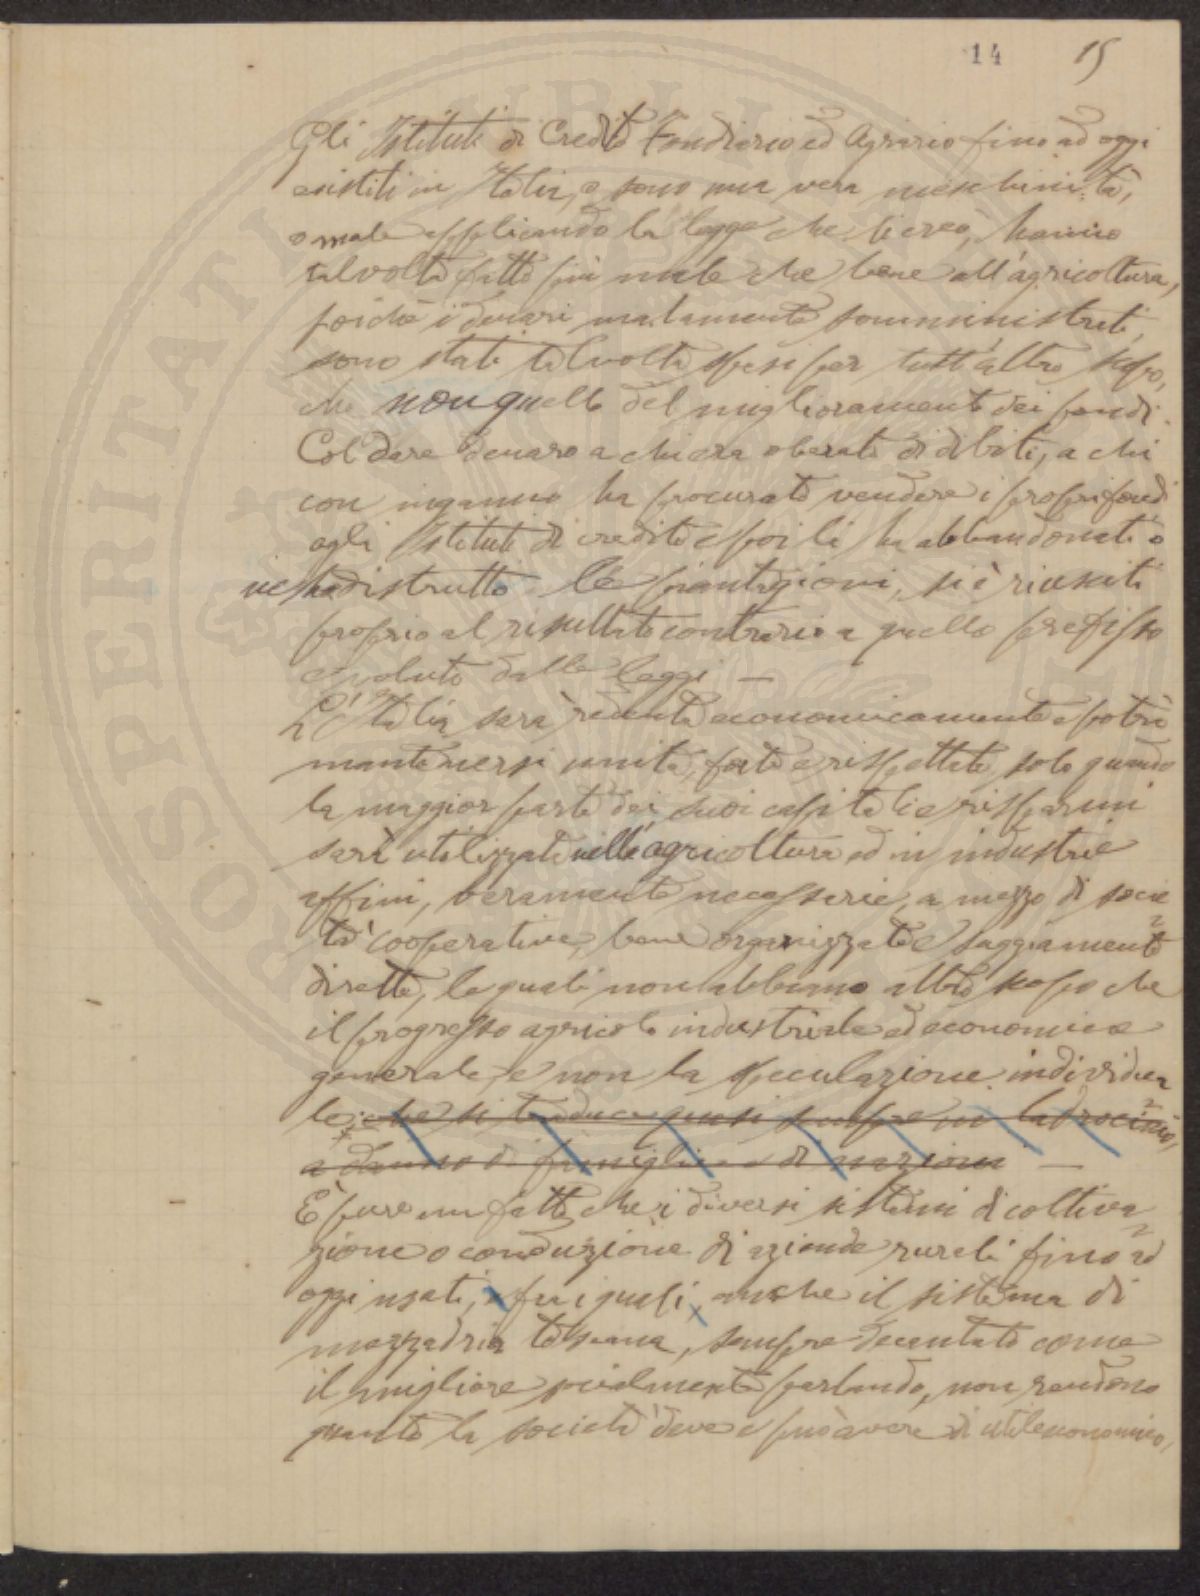 14 15
Gli Istituti di Credito Fondiario ed Agrario fino ad oggi
esistiti in Italia, o sono una vera meschinità,
o male applicando la legge che li creò, hanno
talvolta fatto più male che bene all'agricoltura,
poichè i denari malamente somministrati,
sono stati talvolta spesi per tutt'altro scopo,
che non quello del miglioramento dei fondi.
Col dare denaro a chi era oberato di debiti, a chi
con inganno ha procurato vendere i propri fondi
agli Istituti di credito e poi li ha abbandonati o
ne ha distrutto le piantagioni, si è riusciti
proprio al risultato contrario a quello prefisso
e voluto dalle leggi —
L'Italia sarà redenta economicamente e potrà
mantenersi unita, forte e rispettata, solo quando
la maggior parte dei suoi capitali e risparmi
sarà utilizzata nell'agricoltura ed in industrie
affini, veramente necessarie, a mezzo di socie
tà cooperative, bene organizzate e saggiamente
dirette, le quali non abbiano altro scopo che
il progresso agricolo industriale ed economico
generale, e non la speculazione individua
le, che si traduce quasi sempre in ladrocinio,
a danno di famiglie e di nazioni —
È pure un fatto che i diversi sistemi di coltiva
zione o conduzione di aziende rurali fino ad
oggi usati, e fra i quali, anche il sistema di
mezzadria toscana, sempre decantato come
il migliore socialmente parlando, non rendono
quanto la società deve e può avere di utile economico,
PROSPERITATI PUBLICAE